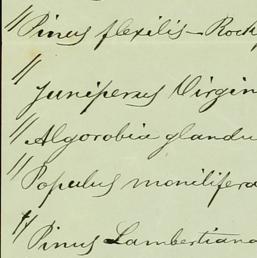 " Pinus flexilis - Rock
"
Juniperus Virgin
" Algorobia glandu
" Populus monilifera
" Pinus Lambertiana